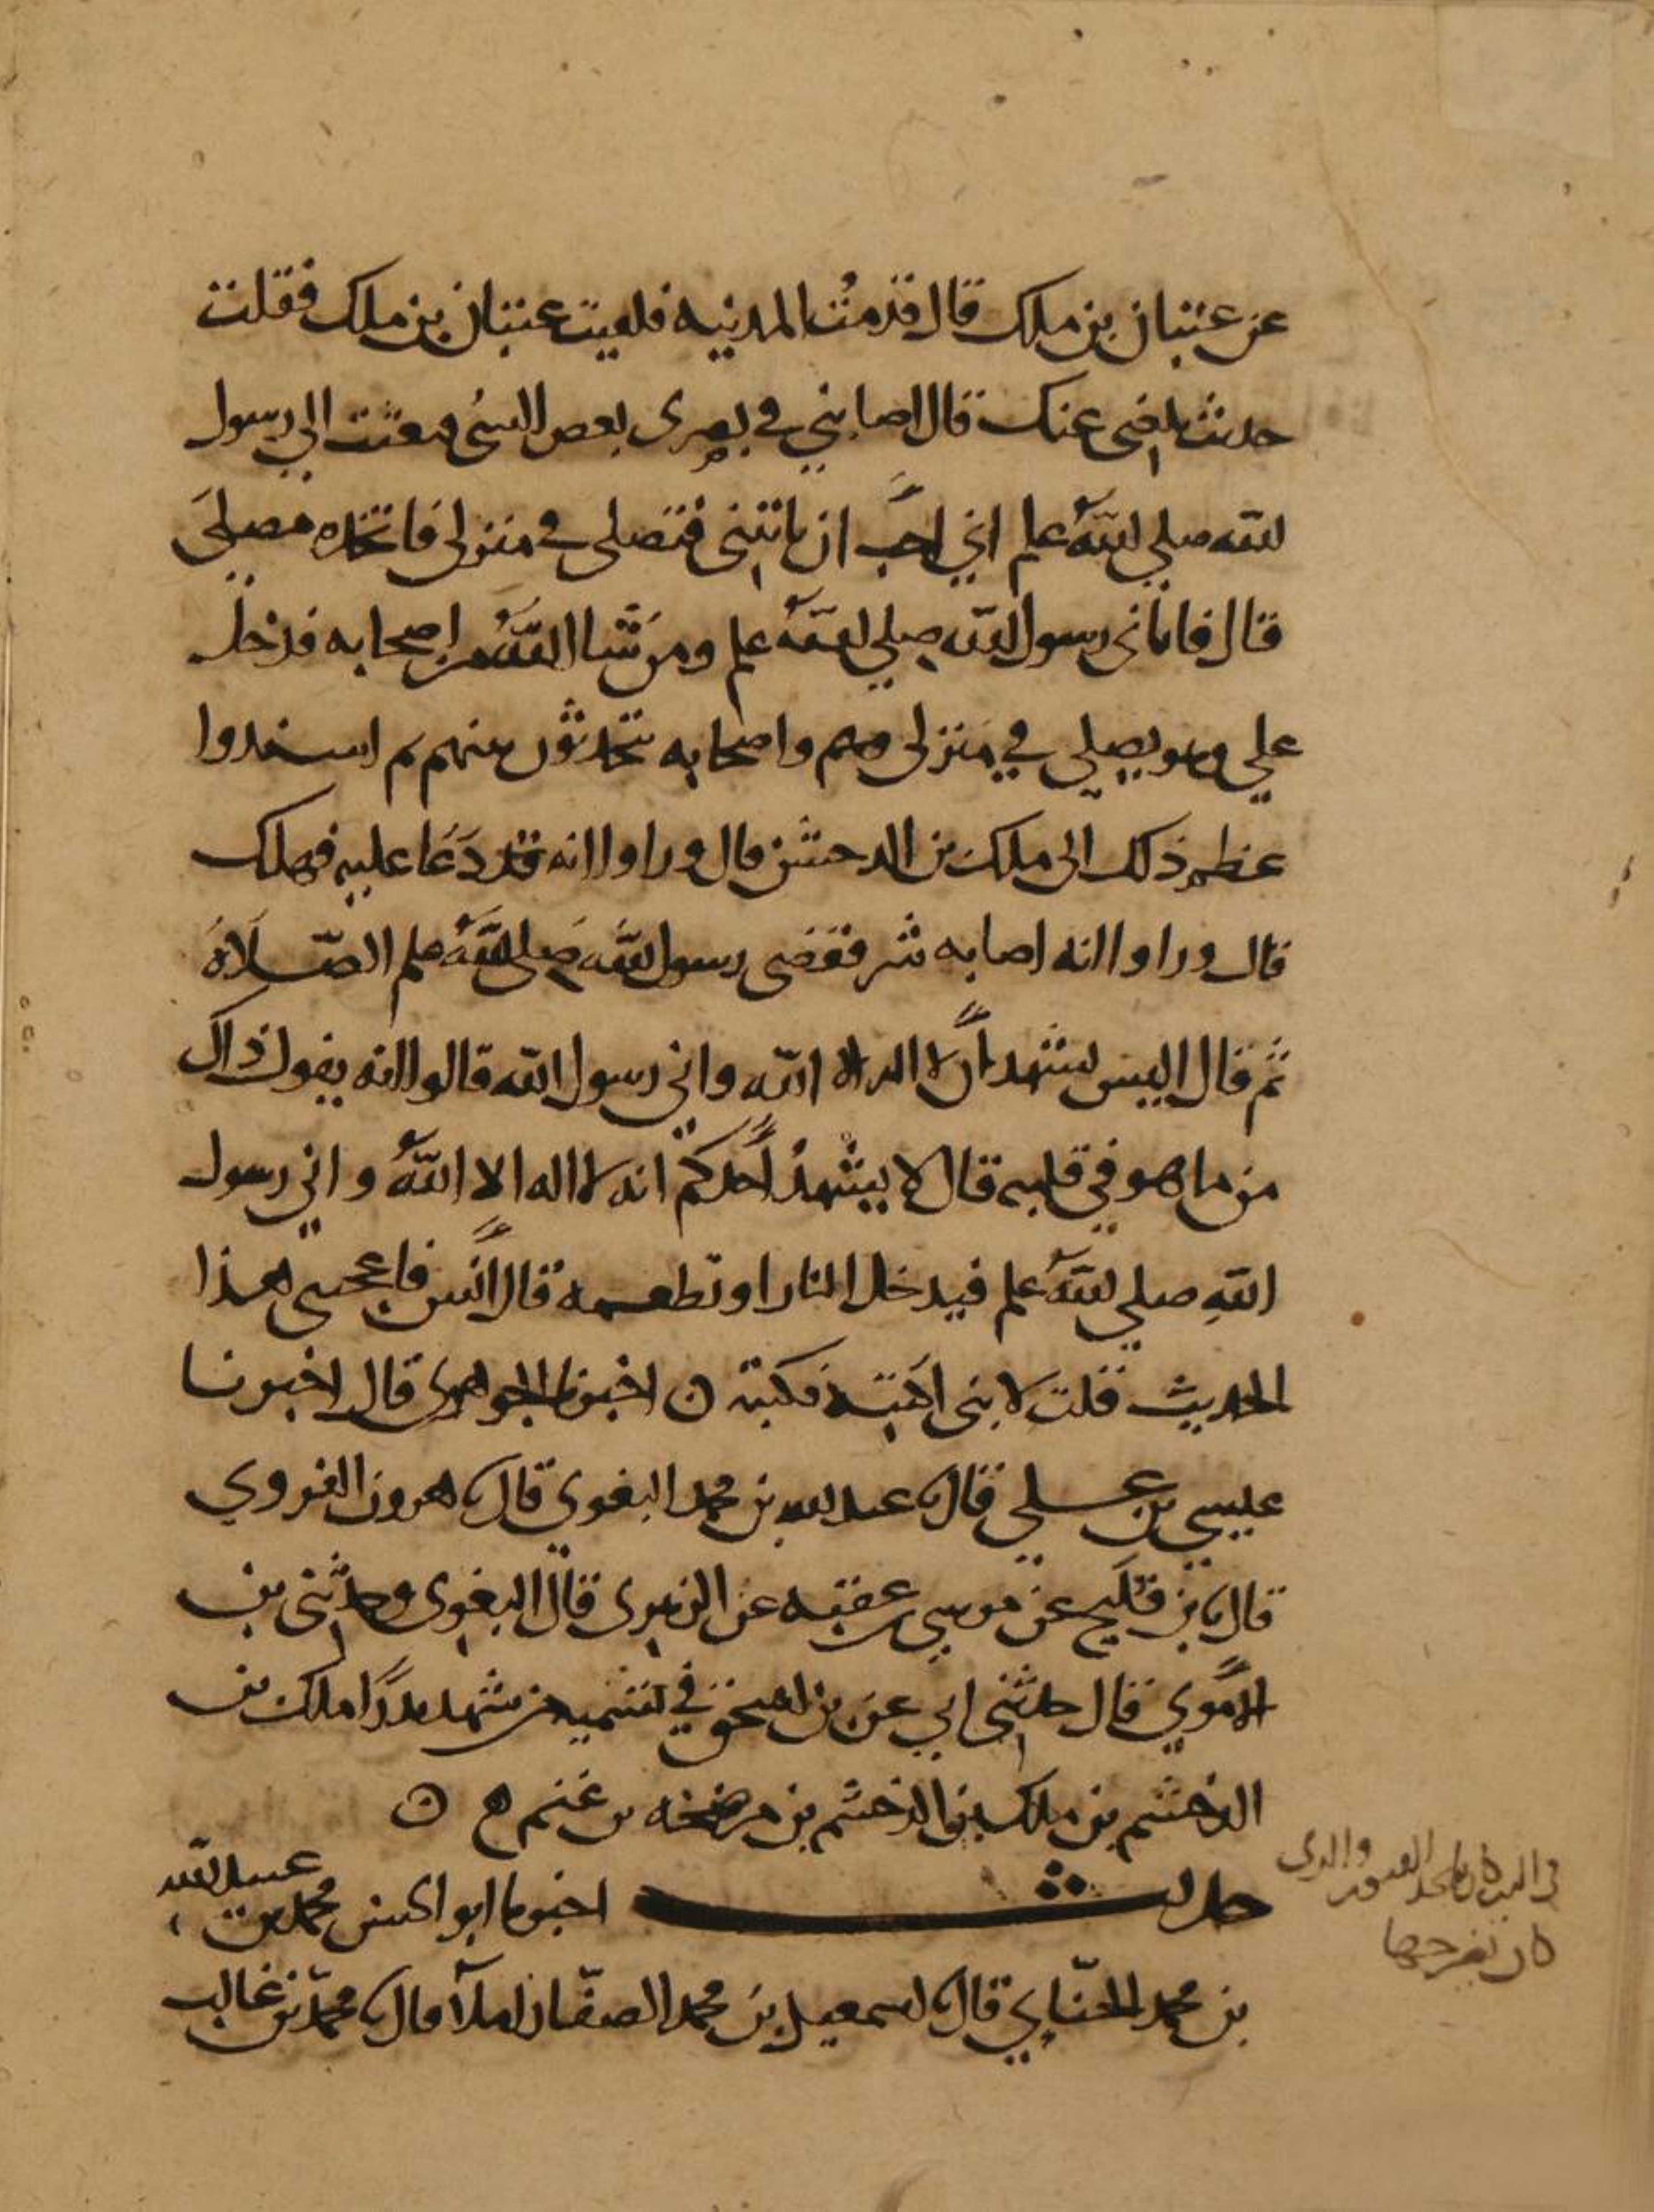 عن عتبان بن ملك قال قدمت المدينه فلقيت عتبان بن ملك فقلت
حديث بلغني عنك قال اصابني في بصري بعض الشئ فبعثت الي رسول
الله صلي الله علم اني احب ان تاتيني فتصلى في منزلى فاتخذه مصلى
قال فاتانى رسول الله صلي الله علم ومن شا الله من اصحابه فدخل
علي وهو يصلي في منزلى واصحابه يتحدثون بينهم ثم اسندوا
عظم ذلك الى ملك بن الدخشن قال ورواوا انه قد دعا عليه فهلك
قال ورواوا انه اصابه شر فقضى رسول الله صلى الله علم الصلاة
ثم قال اليس يشهد ان لا اله الا الله واني رسول الله قالوا انه يقول ذاك
من ما هو في قلبه قال لا يشهد احدكم انه لا اله الا الله واني رسول
الله صلي الله علم فيدخل النار او تطعمه قال انس فاعجبني هذا
الحديث فقلت لابنى اكتبه فكتبه ه اخبرنا الجوهري قال اخبرنا
عيسي بن علي قال نا عبد الله بن محمد البغوي قال نا هرون الفروي
قال نا بن فليح عن موسي بن عقبه عن الزهري قال البغوى وحدثنى بن
الاموي قال حدثنى ابي عن بن اسحق في تسميه من شهد بدرا ملك بن
الدخشم بن ملك بن الدخشم بن مرضخه بن غنم ه ه
حديث اخبرنا ابو الحسن محمد بن عبيد الله
بن محمد الحنائي قال نا اسمعيل بن محمد الصفار املا قال نا محمد بن غالب
كان يخرجها